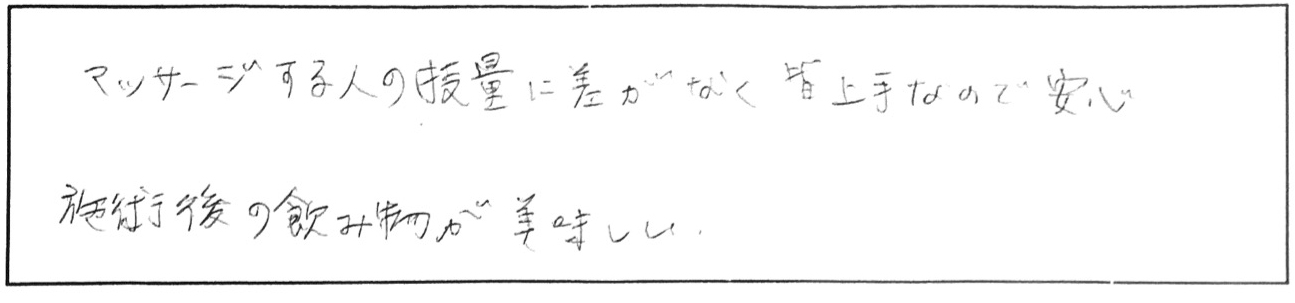 マッサージする人の技量に差がなく皆上手なので安心
施術後の飲み物が美味しい.